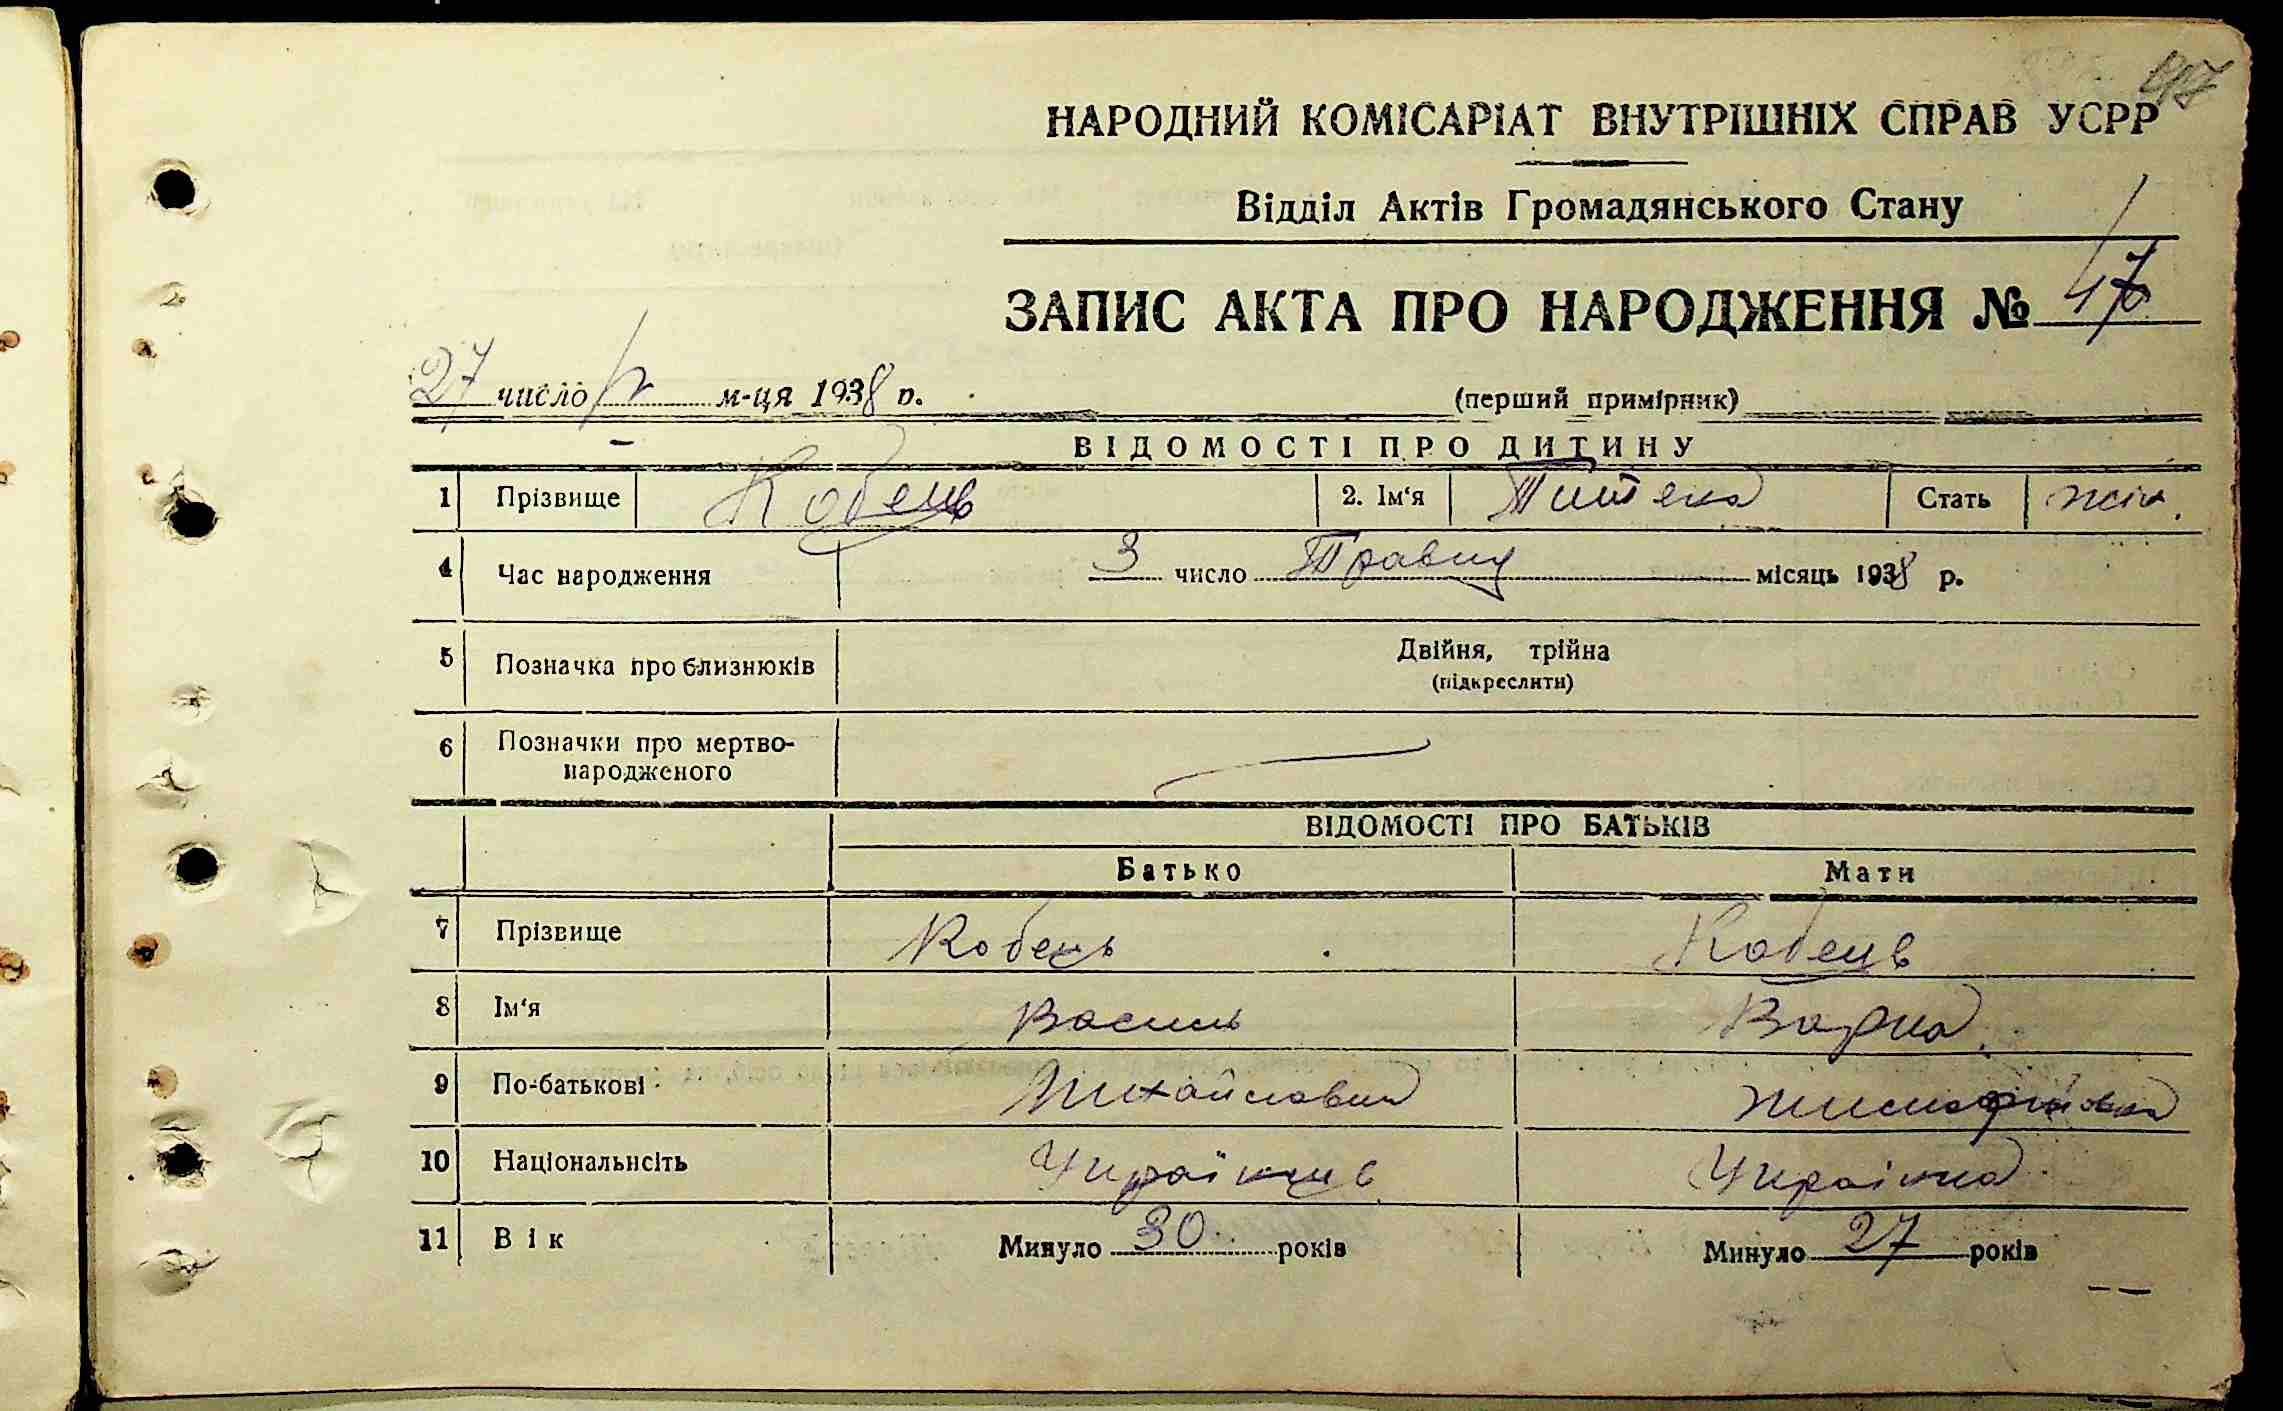 НАРОДНИЙ КОМІСАРІАТ ВНУТРІШНІХ СПРАВ УСРР
Відділ Актів Громадянського Стану
ЗАПИС АКТА ПРО НАРОДЖЕННЯ № 47
27 число м-ця 1938 р. (перший примірник)
ВІДОМОСТІ ПРО ДИТИНУ
1 Прізвище Кобець 2. Ім‘я Стать жін.
4 Час народження 3 число Травня місяць 1938 р.
5 Позначка про близнюків Двійня, трійна
(підкреслити)
6 Позначки про мертво-
народженого
ВІДОМОСТІ ПРО БАТЬКІВ
Батько Мати
7 Прізвище Кобець Кобець
8 Ім‘я Василь Варка
9 По-батькові Михайлович
10 Національнсіть Українець Українка
11 Вік Минуло 30 років Минуло 27 років